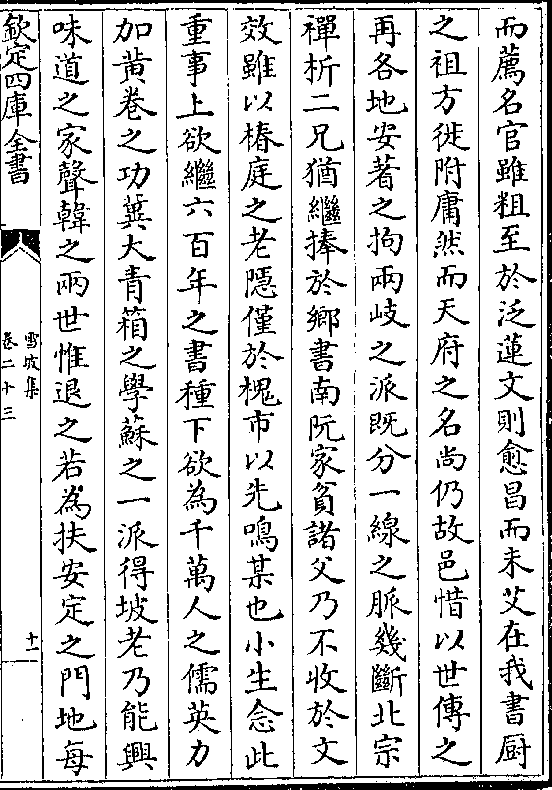 而薦名官雖粗至於泛蓮文則愈昌而未艾在我書厨
之祖方徙附庸然而天府之名尚仍故邑惜以世傳之
再各地安著之拘兩岐之派既分一線之脈幾斷北宗
禪析二兄猶繼捧於鄉書南阮家貧諸父乃不收於文
效雖以椿庭之老隱僅於槐市以先鳴某也小生念此
重事上欲繼六百年之書種下欲為千萬人之儒英力
加黄卷之功冀大青箱之學蘇之一派得坡老乃能興
味道之家聲韓之兩世惟退之若為扶安定之門地每
欽定四庫全書
雪坡集
卷二十三
十一